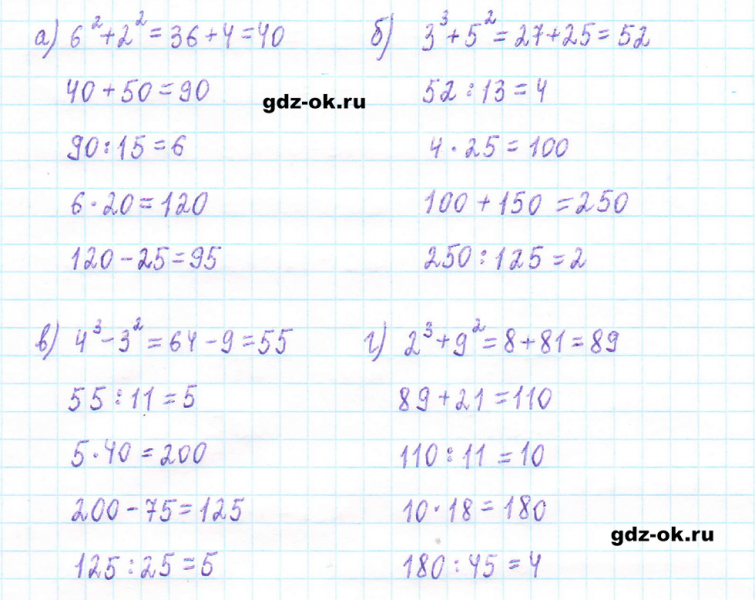 а) 6² + 2² = 36 + 4 = 40
40 + 50 = 90
90 : 15 = 6
6 · 20 = 120
120 - 25 = 95
б) 3³ + 5² = 27 + 25 = 52
52 : 13 = 4
4 · 25 = 100
100 + 150 = 250
250 : 125 = 2
gdz-ok.ru
в) 4³ - 3² = 64 - 9 = 55
55 : 11 = 5
5 · 40 = 200
200 - 75 = 125
125 : 25 = 5
г) 2³ + 9² = 8 + 81 = 89
89 + 21 = 110
110 : 11 = 10
10 · 18 = 180
180 : 45 = 4
gdz-ok.ru